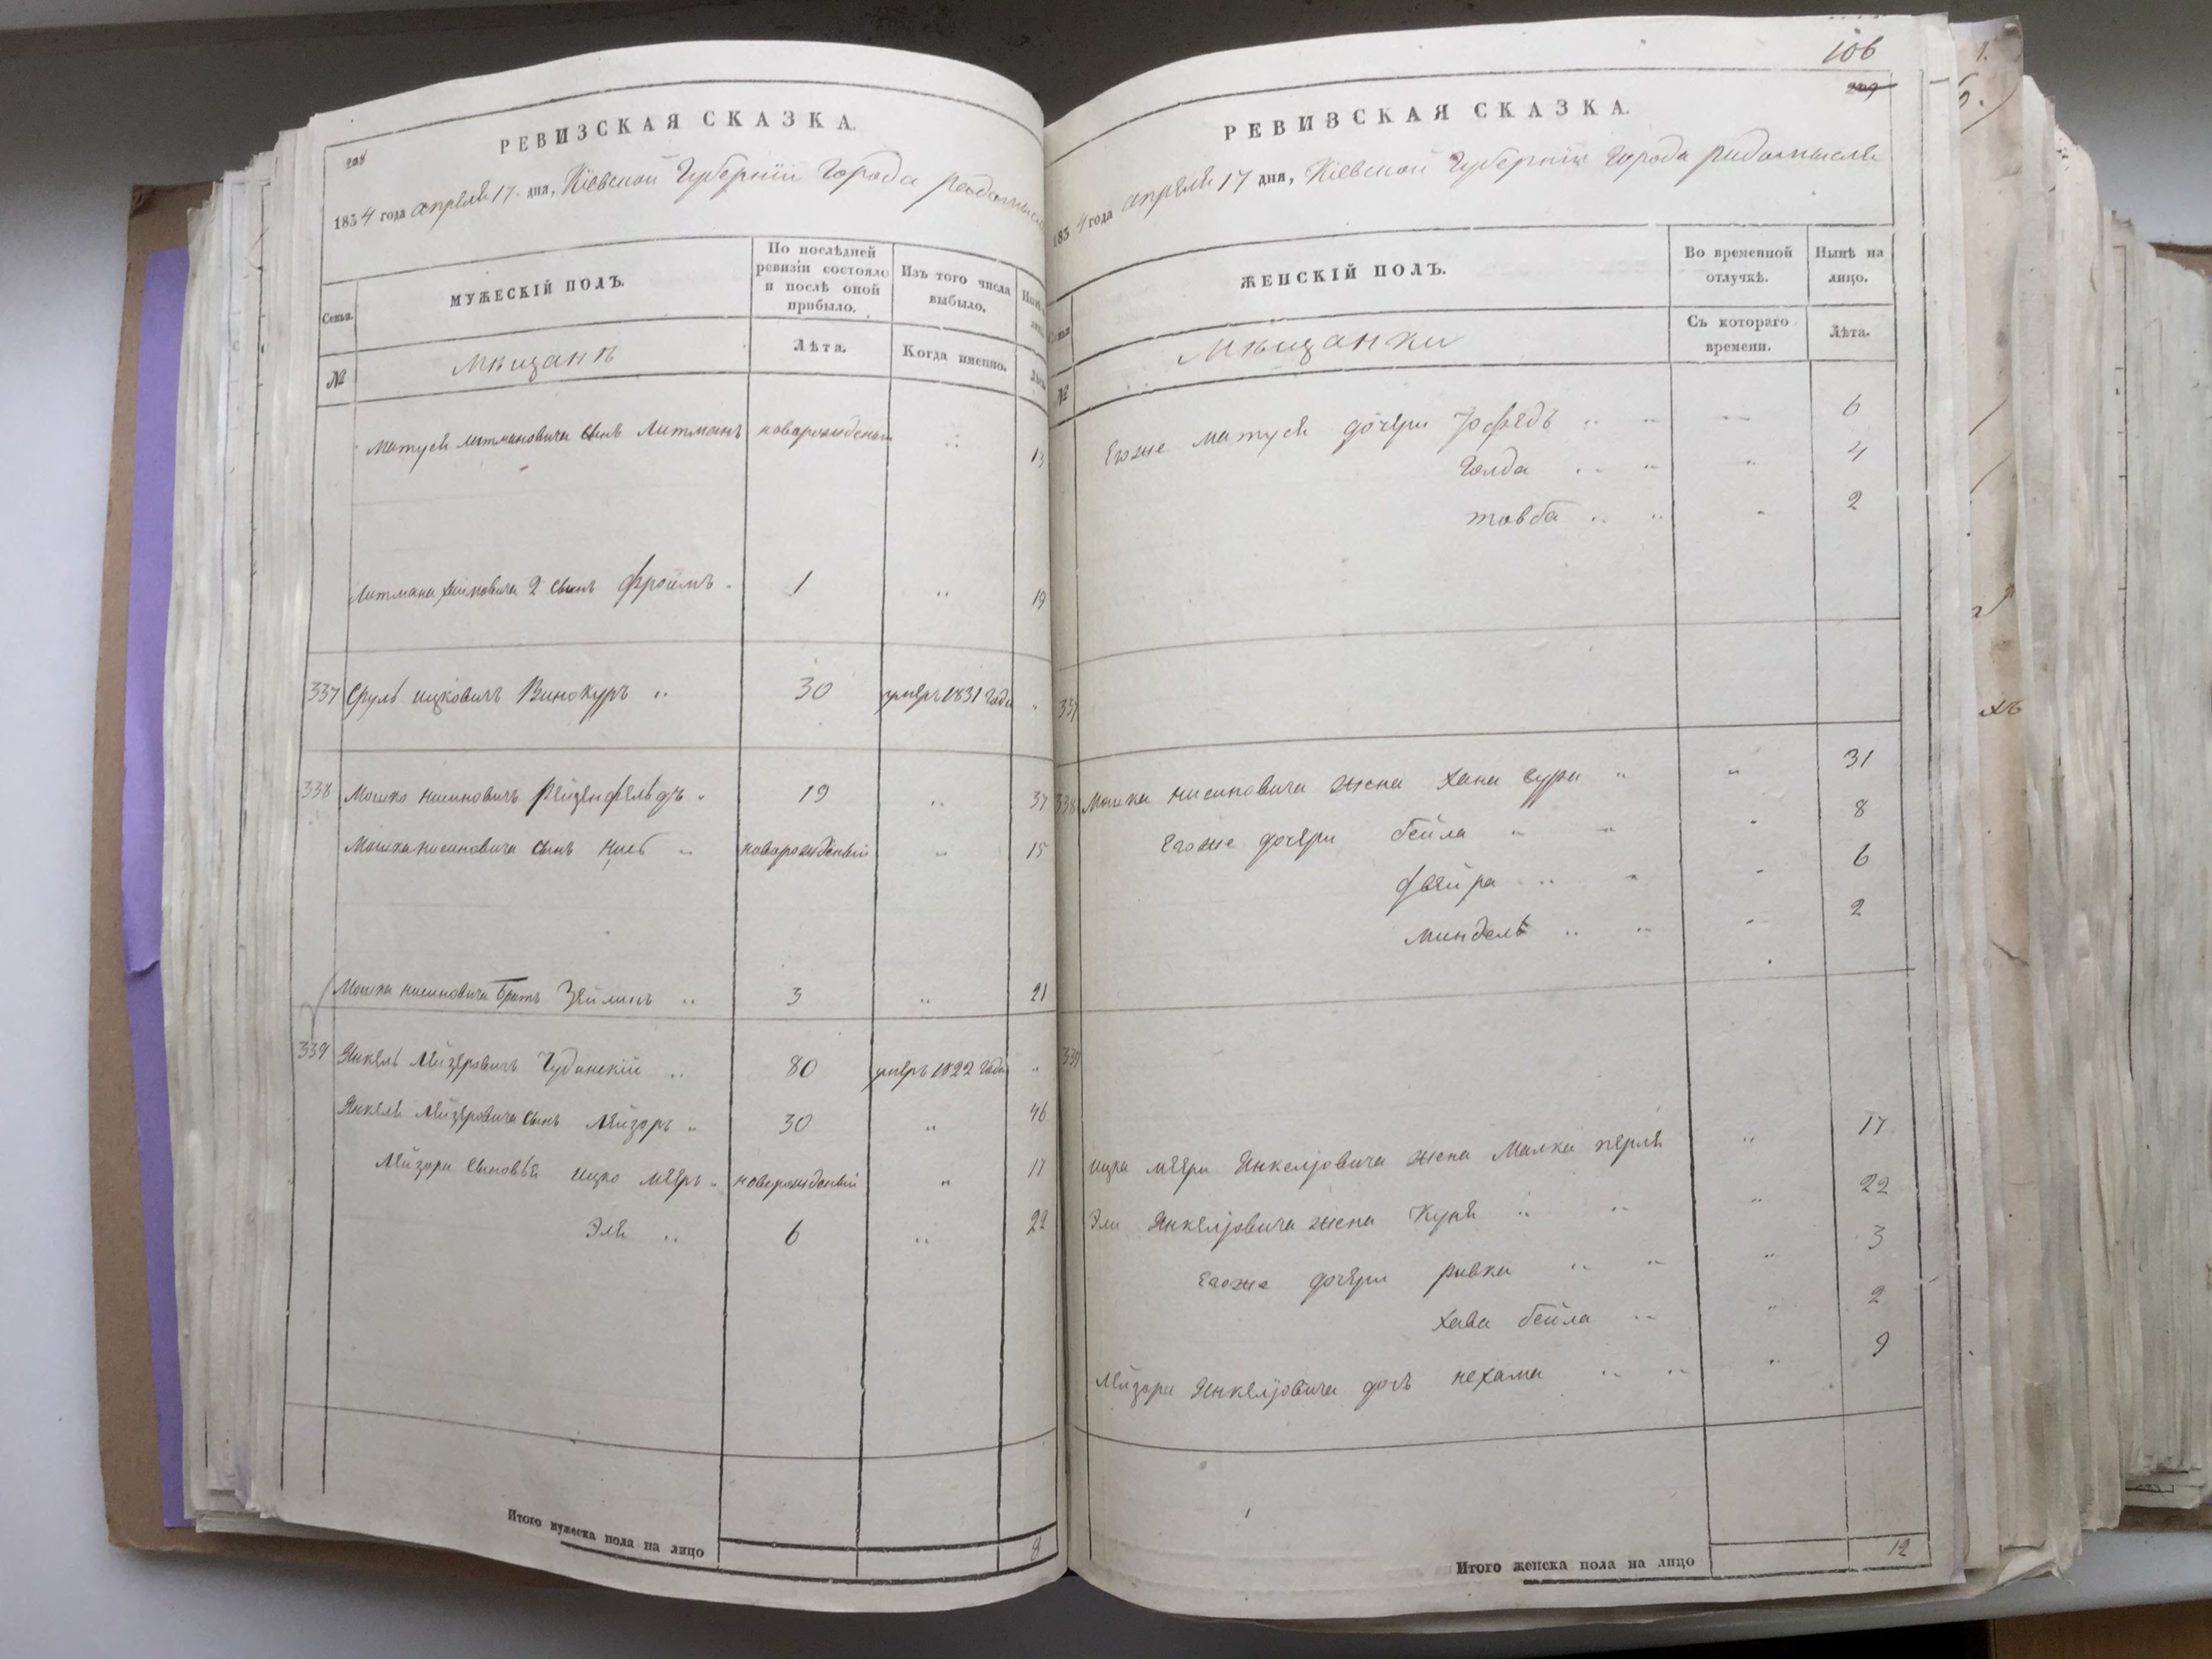 208
РЕВИЗСКАЯ СКАЗКА.
1834 года апреля 17 дня, Кіевской Губерніи Города Радомысля
Семьи.
МУЖЕСКІЙ ПОЛЪ.
По послѣдней ревизіи состояло и послѣ оной прибыло.
Изъ того числа выбыло.
№
Мѣщанъ
Лѣта.
Когда именно.
Матуся Литмановича сынъ Литманъ новорожденый 13
Литмана Хаимовича 2 сынъ Фроимъ 1 19
337 Сруль Ицковичъ Винокуръ 30 умеръ 1831 года
338 Мошко Нисиновичъ Рейзенфельдъ 19 37
Мошка Нисиновича сынъ новорожденый 15
Мошка Нисиновича Братъ 3 21
339 Янкель Лейзеровичъ Чудинскій 80 умеръ 1822 года
Янкеля Лейзеровича сынъ Лейзоръ 30 46
Лейзора сыновья Ицко Мееръ новорожденый 17
Эля 6 22
Итого мужеска пола на лицо 8
106
209
РЕВИЗСКАЯ СКАЗКА.
1834 года апреля 17 дня, Кіевской Губерніи Города Радомысля
Семьи
ЖЕНСКІЙ ПОЛЪ.
Во временной отлучкѣ.
Нынѣ на лицо.
№
Мѣщанки
Съ котораго времени.
Лѣта.
Егоже Матуся дочери 6
Голда 4
Товба 2
337
338 Мошка Нисиновича жена Хана Сура 31
Егоже дочери Бейла 8
Фейра 6
Миндель 2
339
Ицка Меера Янкелзовича жена Малка Перля 17
Эли Янкелзовича жена Куня 22
Егоже дочери Ривка 3
Хава Бейла 2
Лейзора Янкелзовича дочь Нехама 9
Итого женска пола на лицо 12